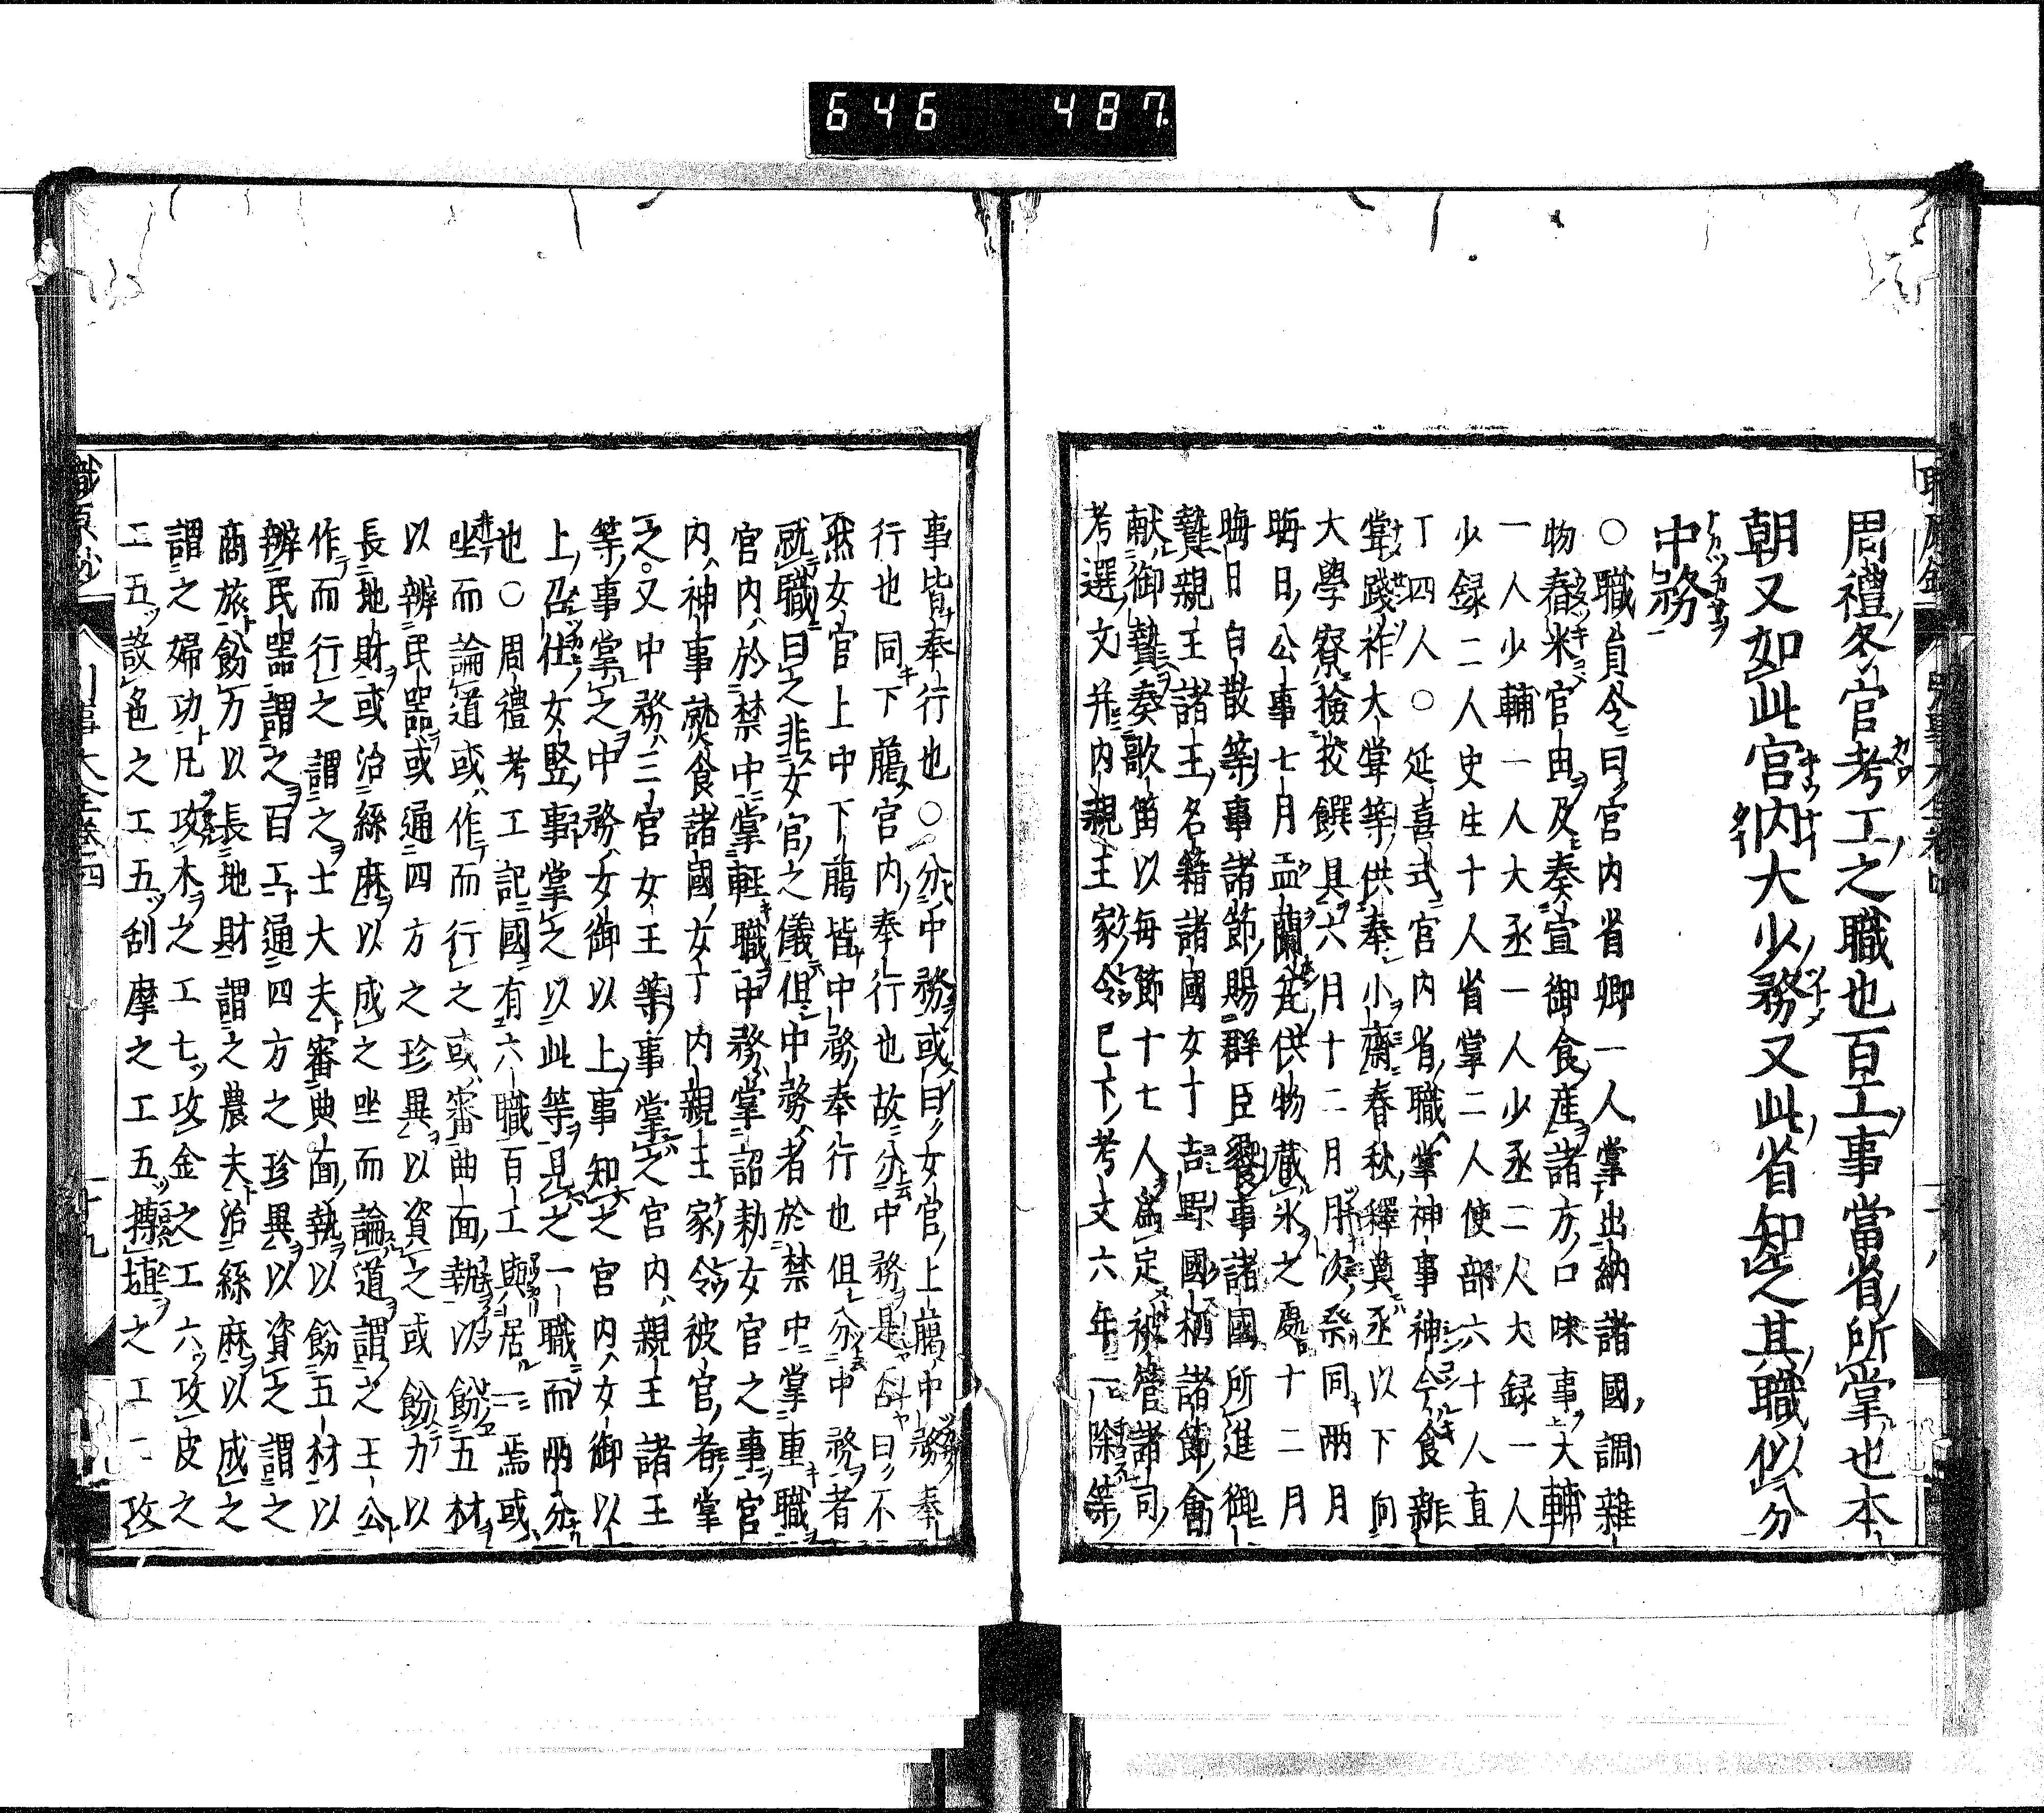 646 487
周禮冬官考工之職也百工事當省所掌也本
朝又如此官内大少務又此省知之其職似分
中務
○職員令曰宮内省卿一人掌出納諸國調雜
物舂米官田及奏宣御食産諸方口味事大輔
一人少輔一人大丞一人少丞二人大録一人
少録二人史生十人省掌二人使部六十人直
丁四人○延喜式宮内省職掌神事神今食新
甞踐祚大甞等供奉小齋春秋釋奠丞以下向
大學寮撿挍饌具六月十二月月次祭同兩月
晦日公事七月盂蘭盆供物蔵氷之處十二月
晦日自散等事諸節賜群臣饗事諸國所進御
贄親王諸王名籍諸國女丁吉野國栖諸節會
献御贄奏歌笛以毎節十七人爲定被管諸司
考選文并内親王家令已下考文六年一除等
事皆奉行也○分中務或曰女官上﨟中務奉
行也同下﨟官内奉行也故分中務是否曰不
然女官上中下﨟皆中務奉行也但分中務者
就職曰之非女官之儀但中務者於禁中掌重職
官内於禁中掌軽職中務掌詔勅女官之事官
内神事熟食諸國女丁内親王家令被官者掌
之又中務三官女女王等事掌之官内親王諸王
等事掌之中務女御以上事知之官内女御以
上召仕女竪事掌之以此等見之一職而兩分
也○周禮考工記國有六職百工與居一焉或
坐而論道或作而行之或審曲面執以飭五材
以辨民器或通四方之珍異以資之或飭力以
長地財或治絲麻以成之坐而論道謂之王公
作而行之謂之士大夫審曲面執以飭五材以
辨民器謂之百工通四方之珍異以資之謂之
商旅飭力以長地財謂之農夫治絲麻以成之
謂之婦功凡攻木之工七攻金之工六攻皮之
工五設色之工五刮摩之工五摶埴之工二攻
職原抄
十九